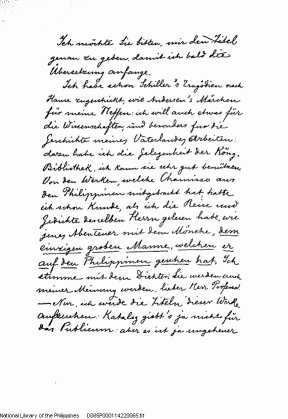 Ich möchte Sie bitten, mir den Titel
genau zu geben, damit ich bald die
Übersetzung anfange.
Ich habe schon Schiller's Tragödien nach
Hause zugeschickt, wie Andersen's Märchen
für meine Neffen: ich will auch etwas für
die Wissenschaften und besonders für die
Geschichte meines Vaterlandes arbeiten:
dazu habe ich die Gelegenheit der König.
Bibliothek, ich kann sie sehr gut benützen.
Von den Werken, welche Chamisso aus
den Philippinen mitgebracht hat, hatte
ich schon Kunde, als ich die Reise und
Gedichte desselben Herrn gelesen habe, wie
jenes Abenteuer mit dem Mönche, dem
einzigen groben Manne, welchen er
auf den Philippinen gesehen hat. Ich
stimme mit dem Dichter; Sie werden auch
meiner Meinung werden, lieber Herr Professor
— Nun, ich würde die Titeln dieser Werke
aufsuchen: Katalog giebt's ja nicht für
das Publicum: aber es ist ja ungeheuer
National Library of the Philippines DG85P0001142220065.tif